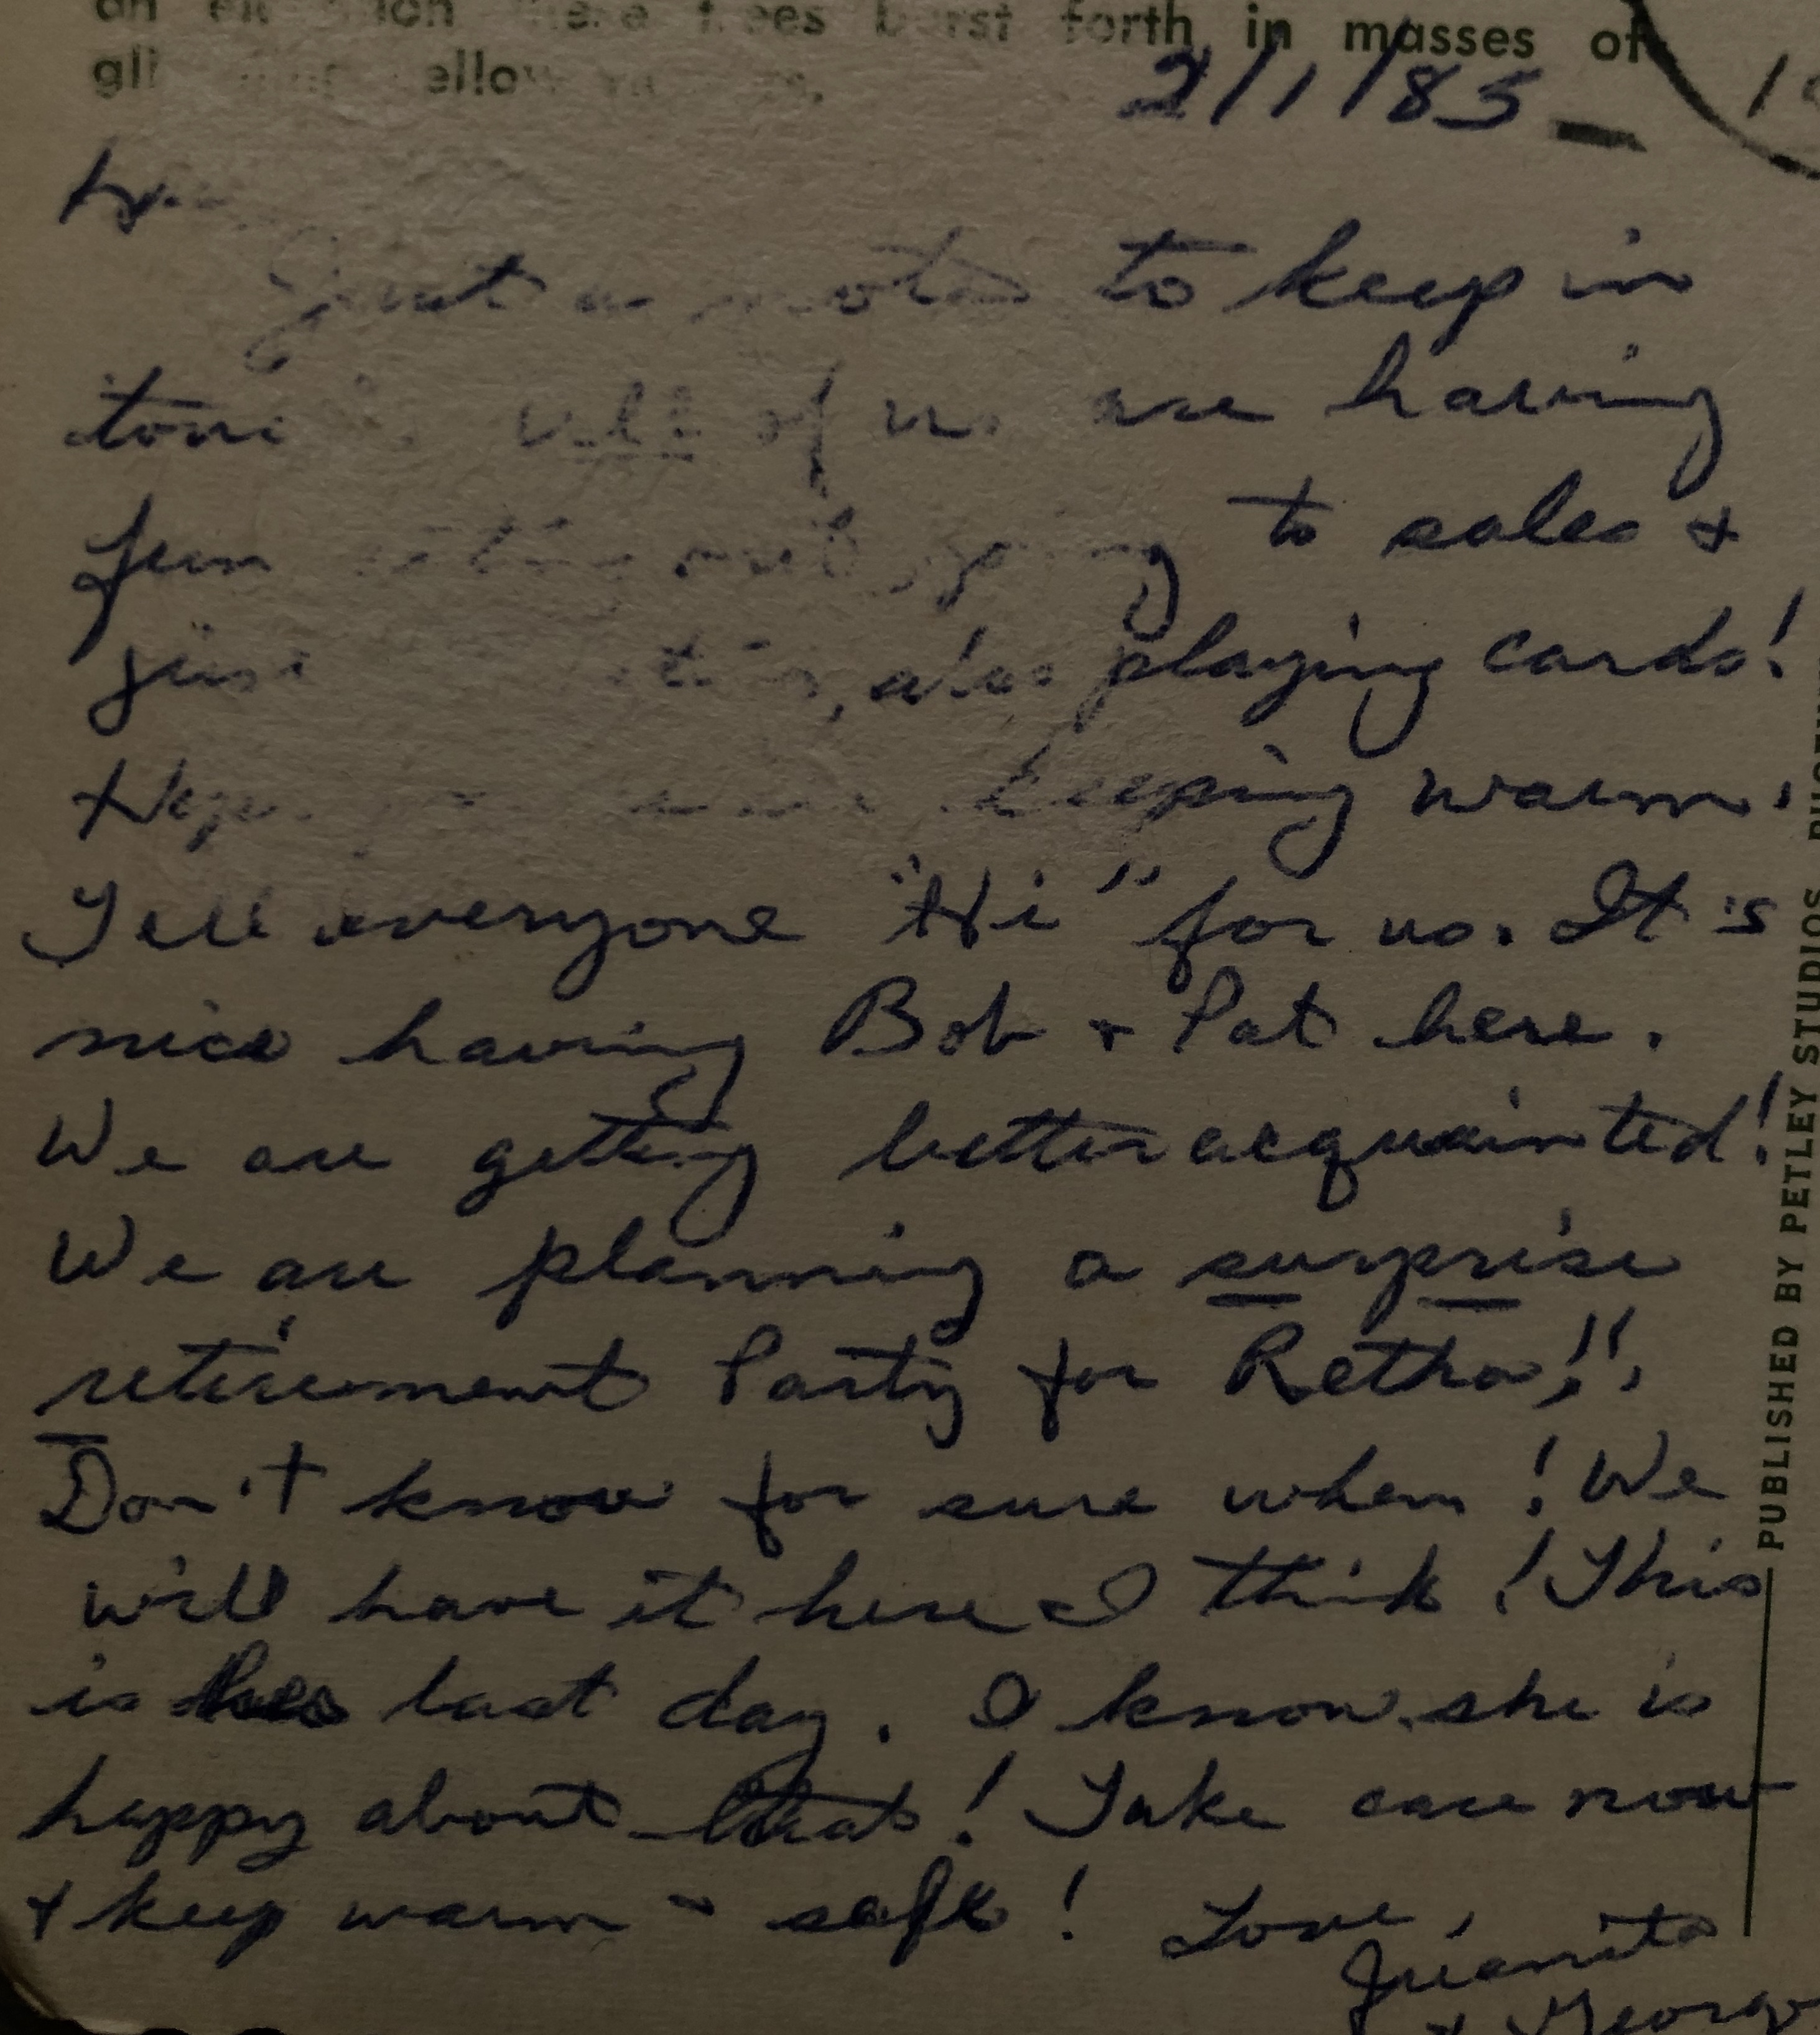 forth in masses of
2/1/85
Just a note to keep in
all of us are having
fun going to sales &
just also playing cards!
Hope you are keeping warm.
Tell everyone "Hi" for us. It's
nice having Bob & Pat here.
We are getting better acquainted!
We are planning a surprise
retirement Party for Retha!!
Don't know for sure when! We
will have it here I think! This
is her last day. I know she is
happy about that! Take care now
& keep warm - safe! Love,
Juanita
& George
PUBLISHED BY PETLEY STUDIOS